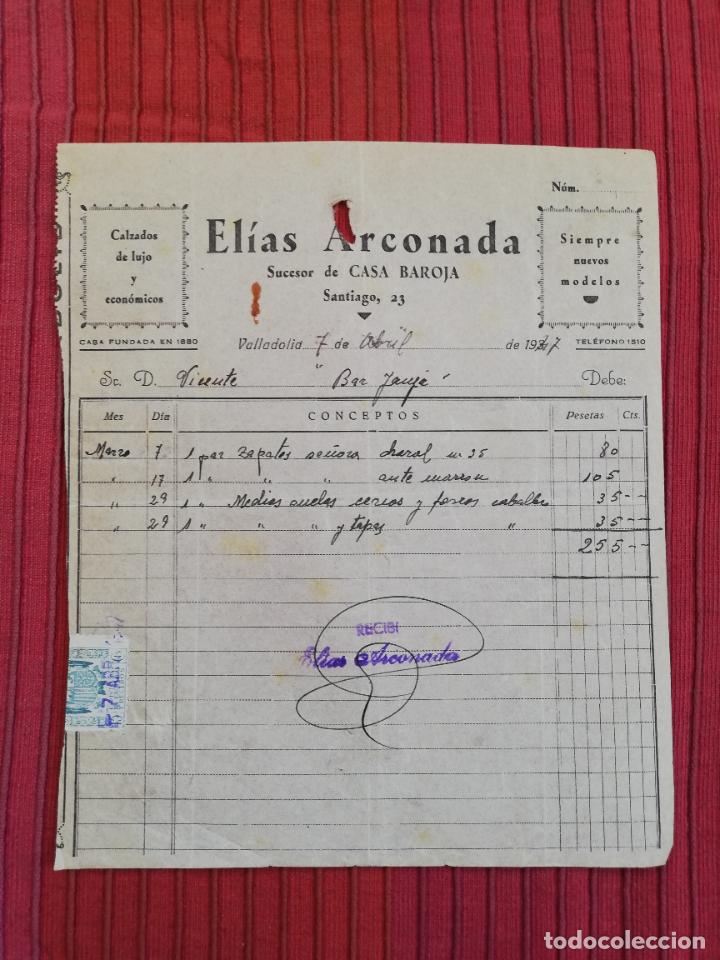 Núm.
Calzados
de lujo
y
económicos
Elías Arconada
Sucesor de CASA BAROJA
Santiago, 23
Siempre
nuevos
modelos
CASA FUNDADA EN 1880
Valladolid 7 de Abril de 1947
TELÉFONO 1510
Sr. D. Vicente " Bar Debe:
Mes Día CONCEPTOS Pesetas Cts.
Marzo 7 1 par zapatos señora charol n 35 80
" 17 1 " " " ante marron 105
" 29 1 " Medias suelas cercos y caballero 35 --
" 29 1 " " " y tapas " 35 --
255 --
RECIBI
Elias Arconada
7 ABR
todocoleccion.net